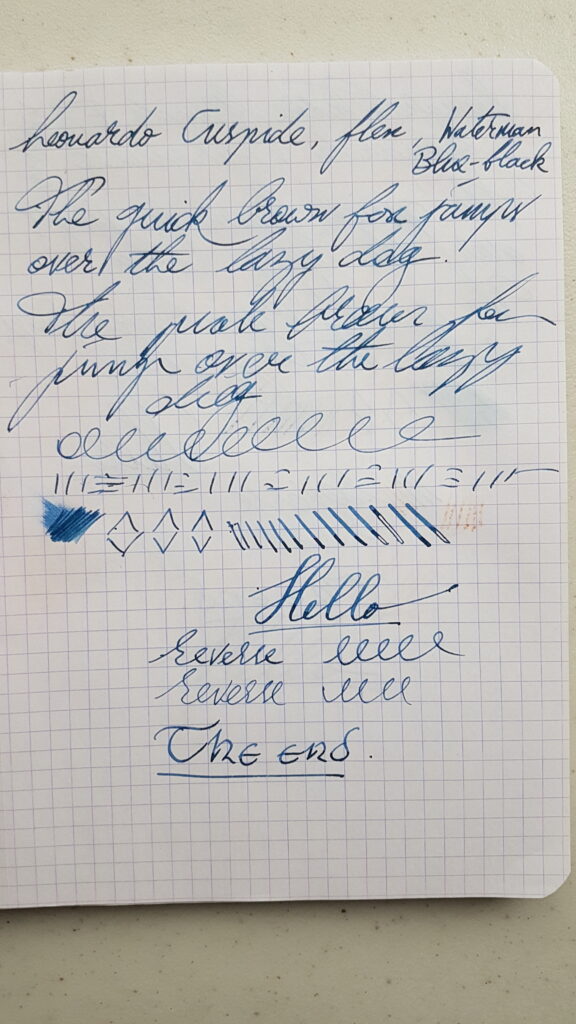 Leonardo Cuspide, flex, Waterman
Blue-black
The quick brown fox jumps
over the lazy dog.
The quick brown fox
jump over the lazy
dog
Hello
Reverse
Reverse
The end.